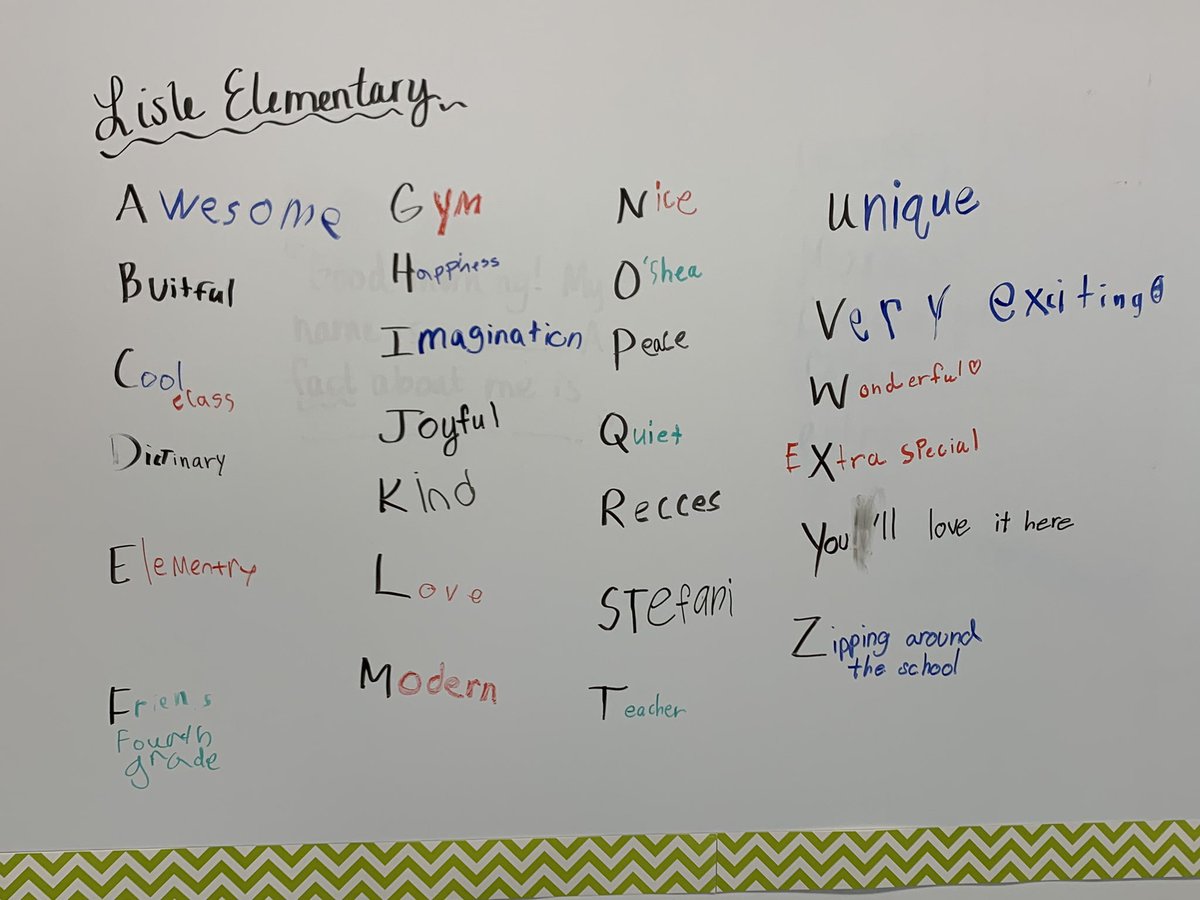 Lisle Elementary
Awesome
Buitful
Cool
class
Dictinary
Elementry
Friens
Fourth
grade
Gym
Happiness
Imagination
Joyful
Kind
Love
Modern
Nice
O'Shea
Peace
Quiet
Recces
STefani
Teacher
unique
Very exciting
Wonderful♡
EXtra special
You'll love it here
Zipping around
the school
Good morning! My
name
fact about me is